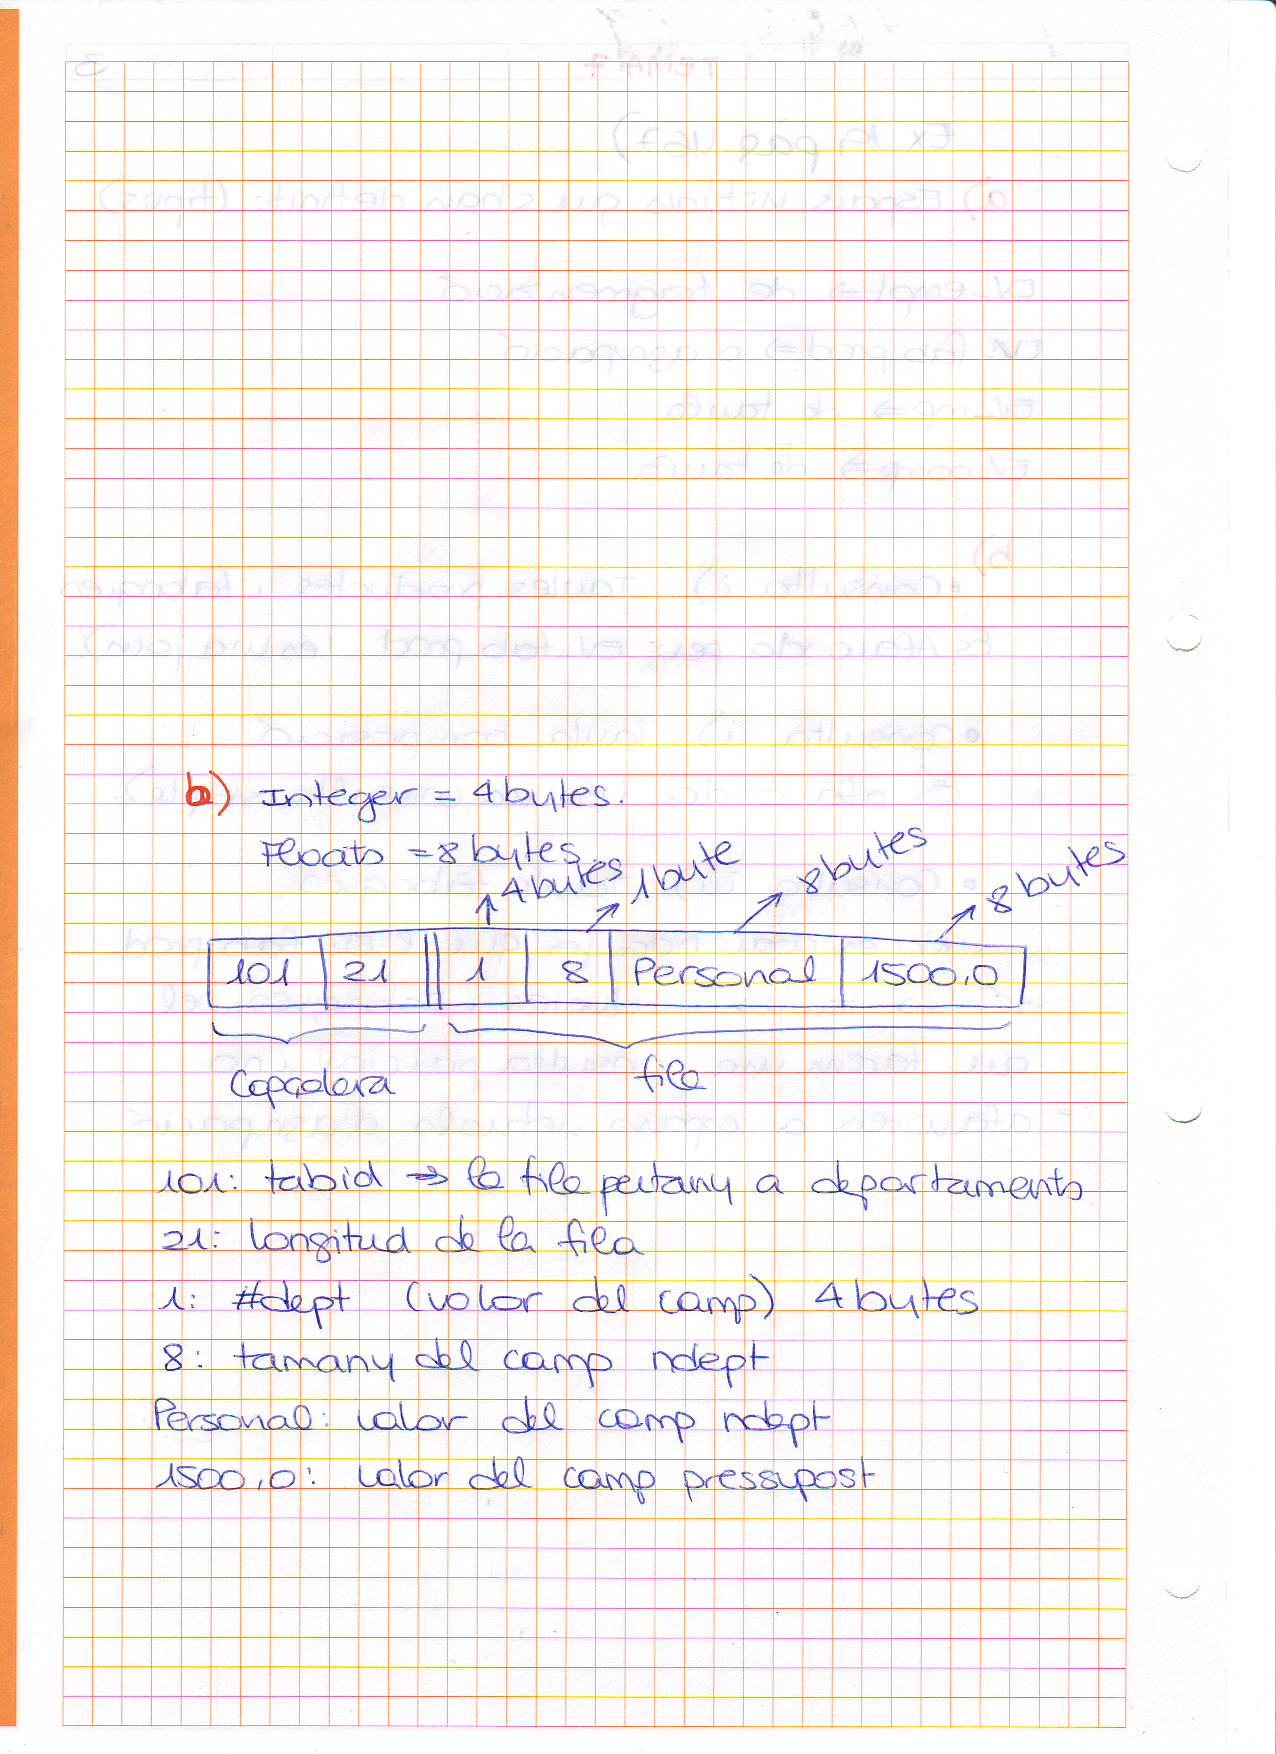 b) Integer = 4 bytes.
Floats = 8 bytes
4 bytes 1 byte 8 bytes 8 bytes
101 21 1 8 Personal 1500,0
Capçalera fila
101: tabid => la fila pertany a departaments
21: longitud de la fila
1: #dept (valor del camp) 4 bytes
8: tamany del camp ndept
Personal: valor del camp ndept
1500,0: valor del camp pressupost